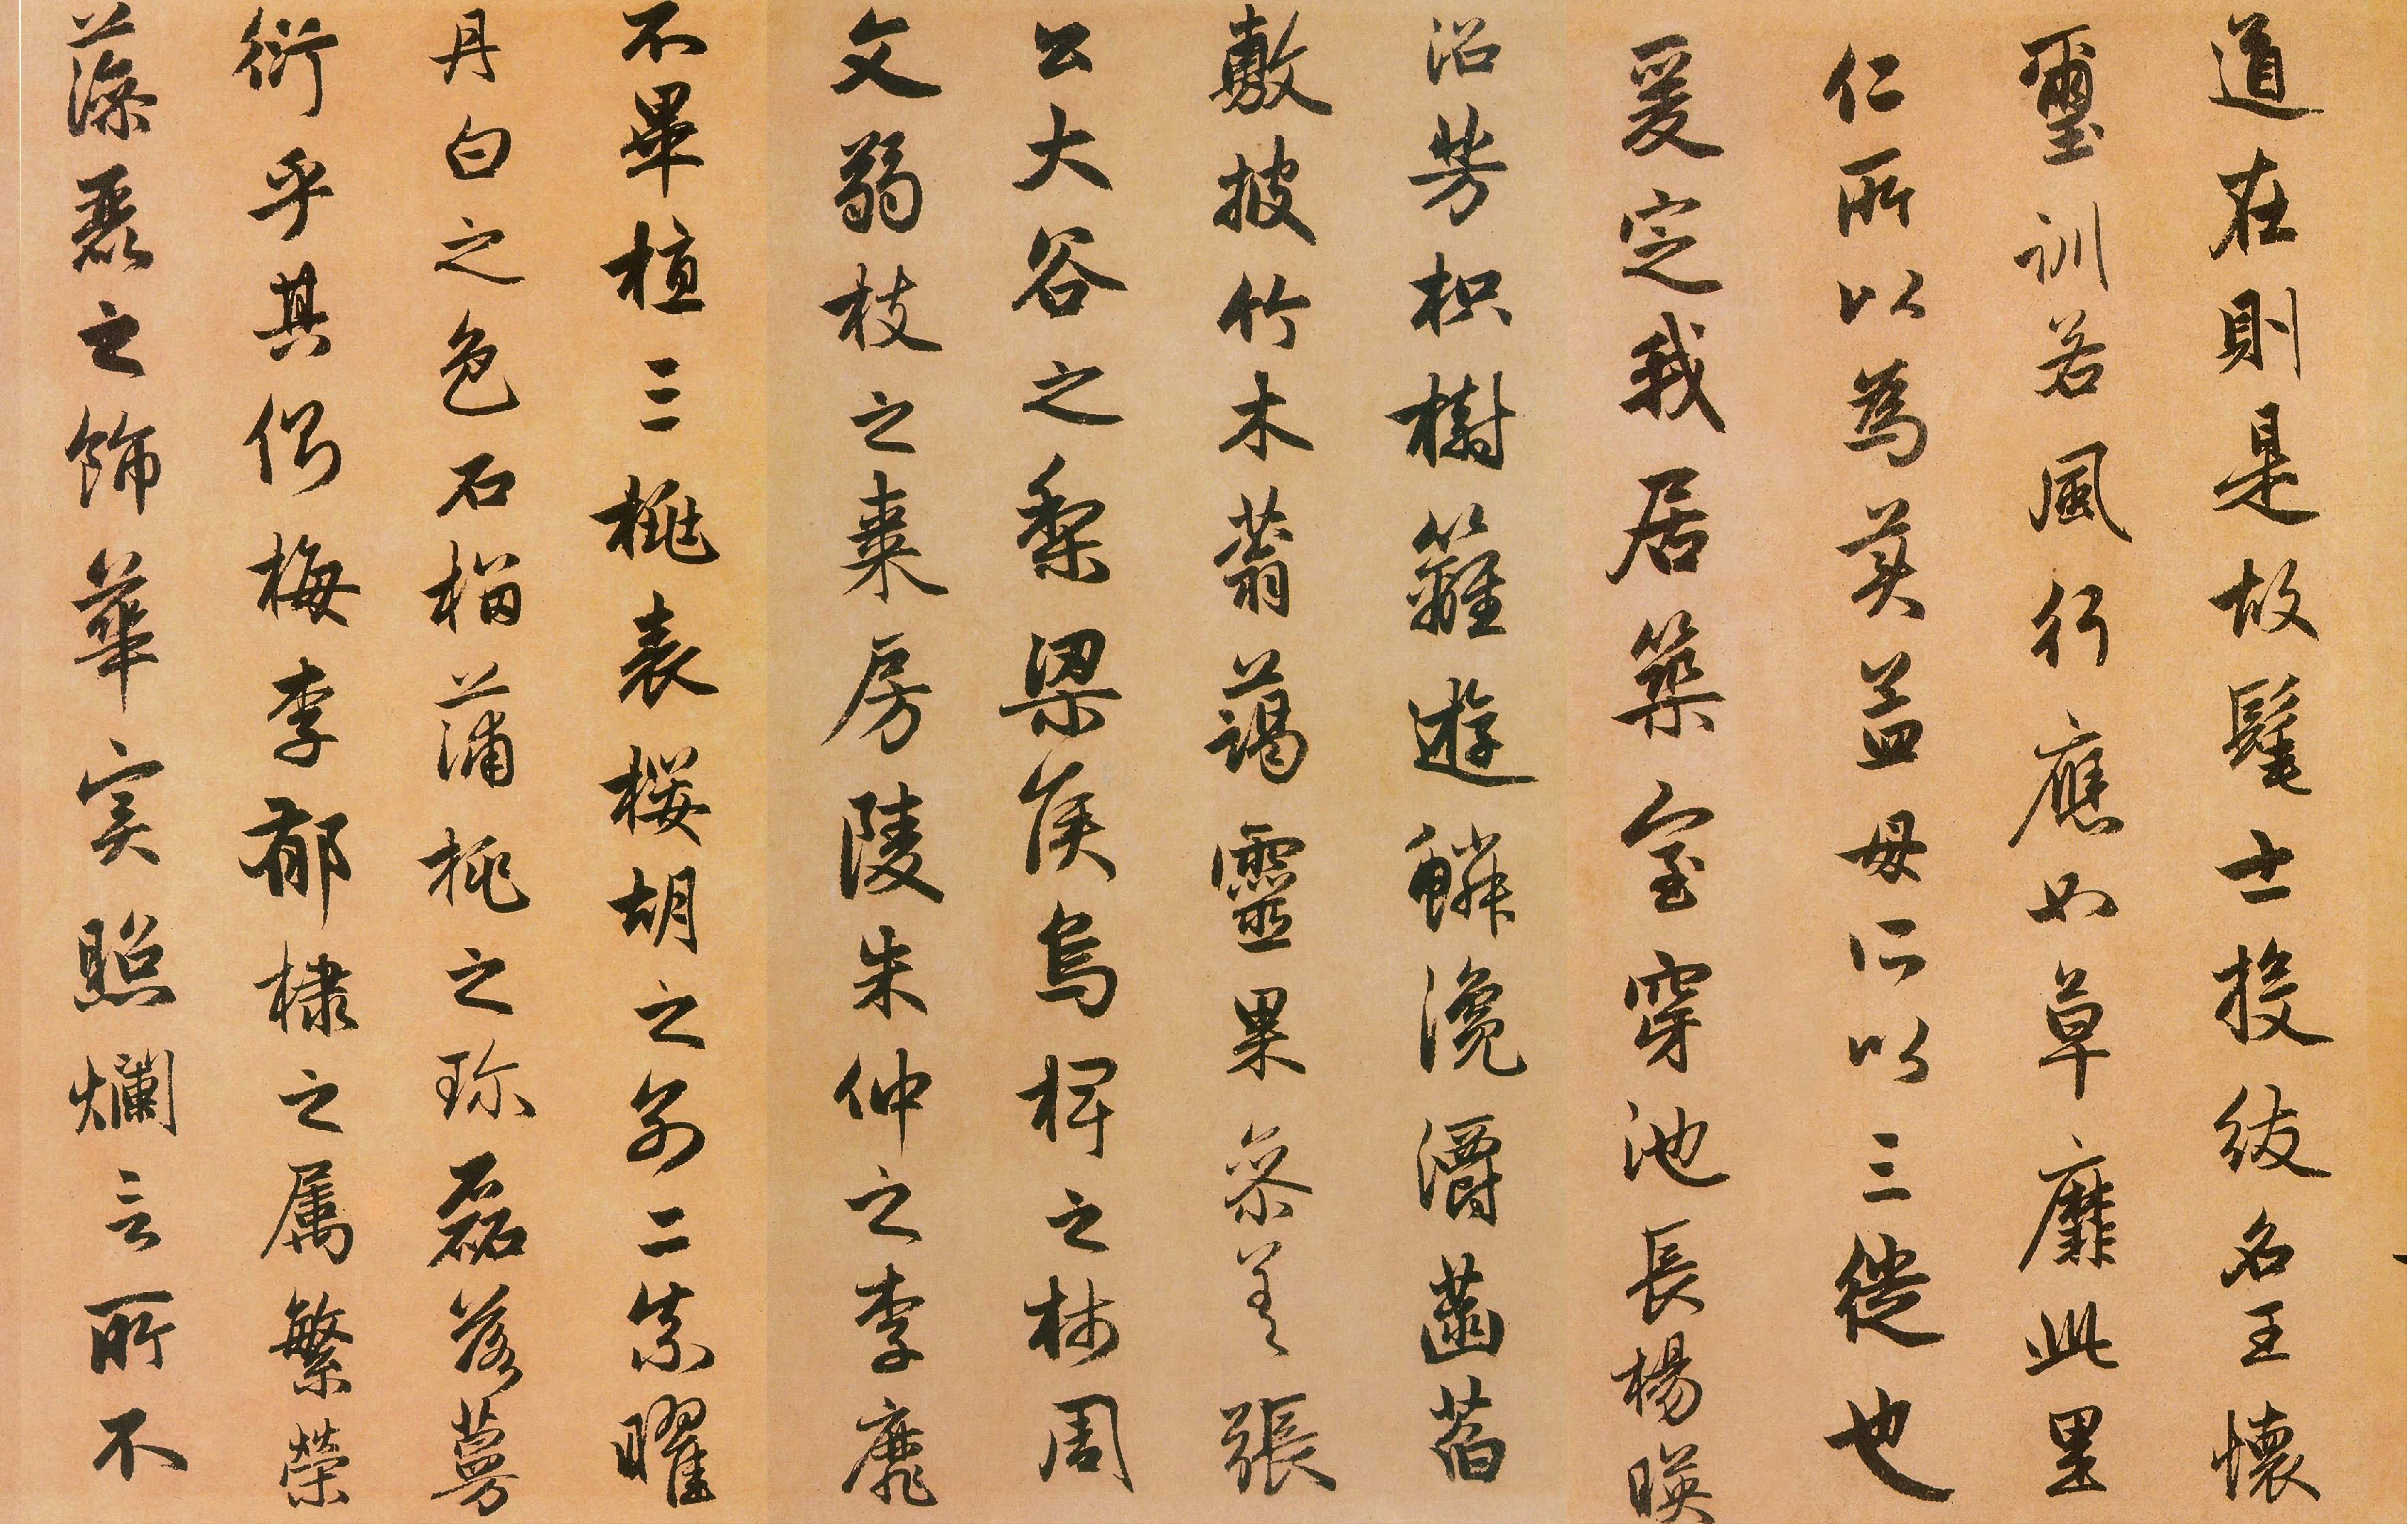 道在則是故髦士投紱名王懷
璽訓若風行應如草靡此里
仁所以為美孟母所以三徙也
爰定我居築室穿池長楊暎
沼芳枳樹籬遊鱗瀺灂菡萏
敷披竹木蓊藹靈果參差張
公大谷之梨梁侯烏椑之柿周
文弱枝之棗房陵朱仲之李靡
不畢植三桃表櫻胡之別二柰曜
丹白之色石榴蒲桃之珍磊落蔓
衍乎其側梅李郁棣之属繁榮
藻麗之飾華実照爛言所不